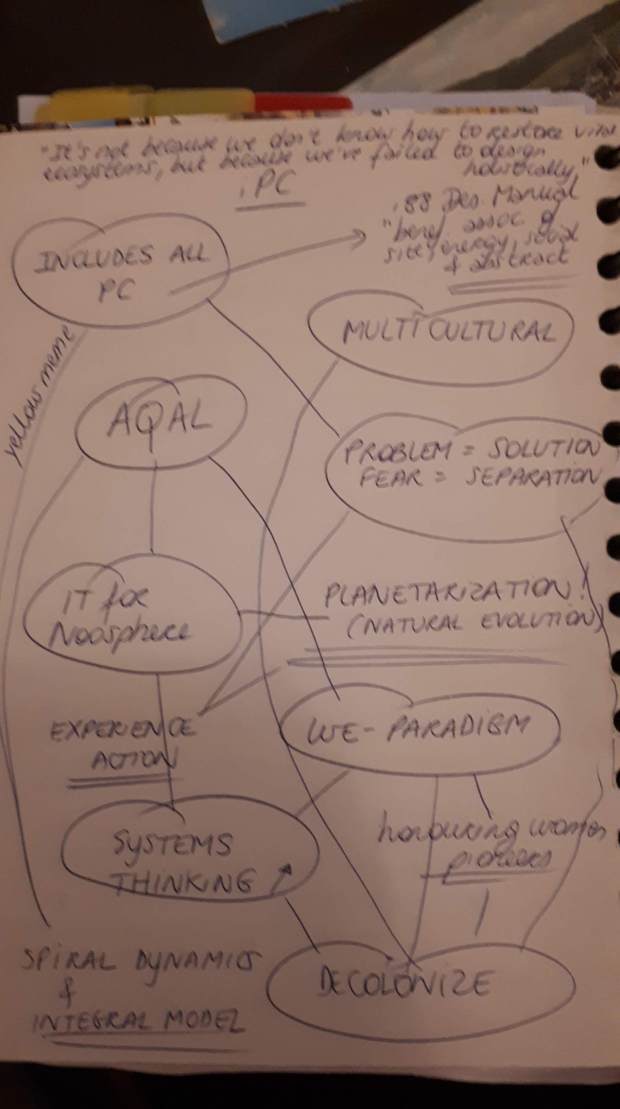 "It's not because we don't know how to restore vital
ecosystems, but because we've failed to design
holistically,"
. PC
INCLUDES ALL
PC
. 88 Des. Manual
"benef. assoc. of
site, energy, social
& abstract
yellow meme
MULTICULTURAL
AQAL
PROBLEM = SOLUTION
FEAR = SEPARATION
IT for
Noosphere
PLANETARIZATION!
(NATURAL EVOLUTION)
EXPERIENCE
ACTION
WE-PARADIGM
SYSTEMS
THINKING
honouring women
pioneers
SPIRAL DYNAMICS
&
INTEGRAL MODEL
DECOLONIZE